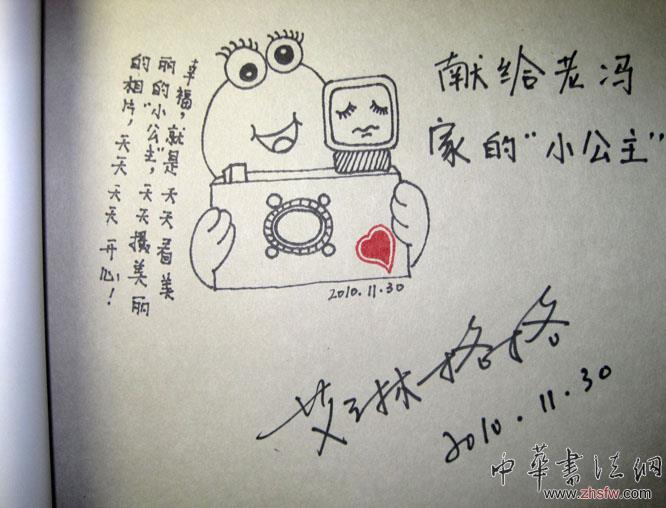 献给老冯
家的"小公主"
幸福，就是天天看美
丽的"小公主"，天天摄美丽
的相片，天天天天开心！
2010.11.30
艾琳格格
2010.11.30
中華書法網
www.zhsfw.com